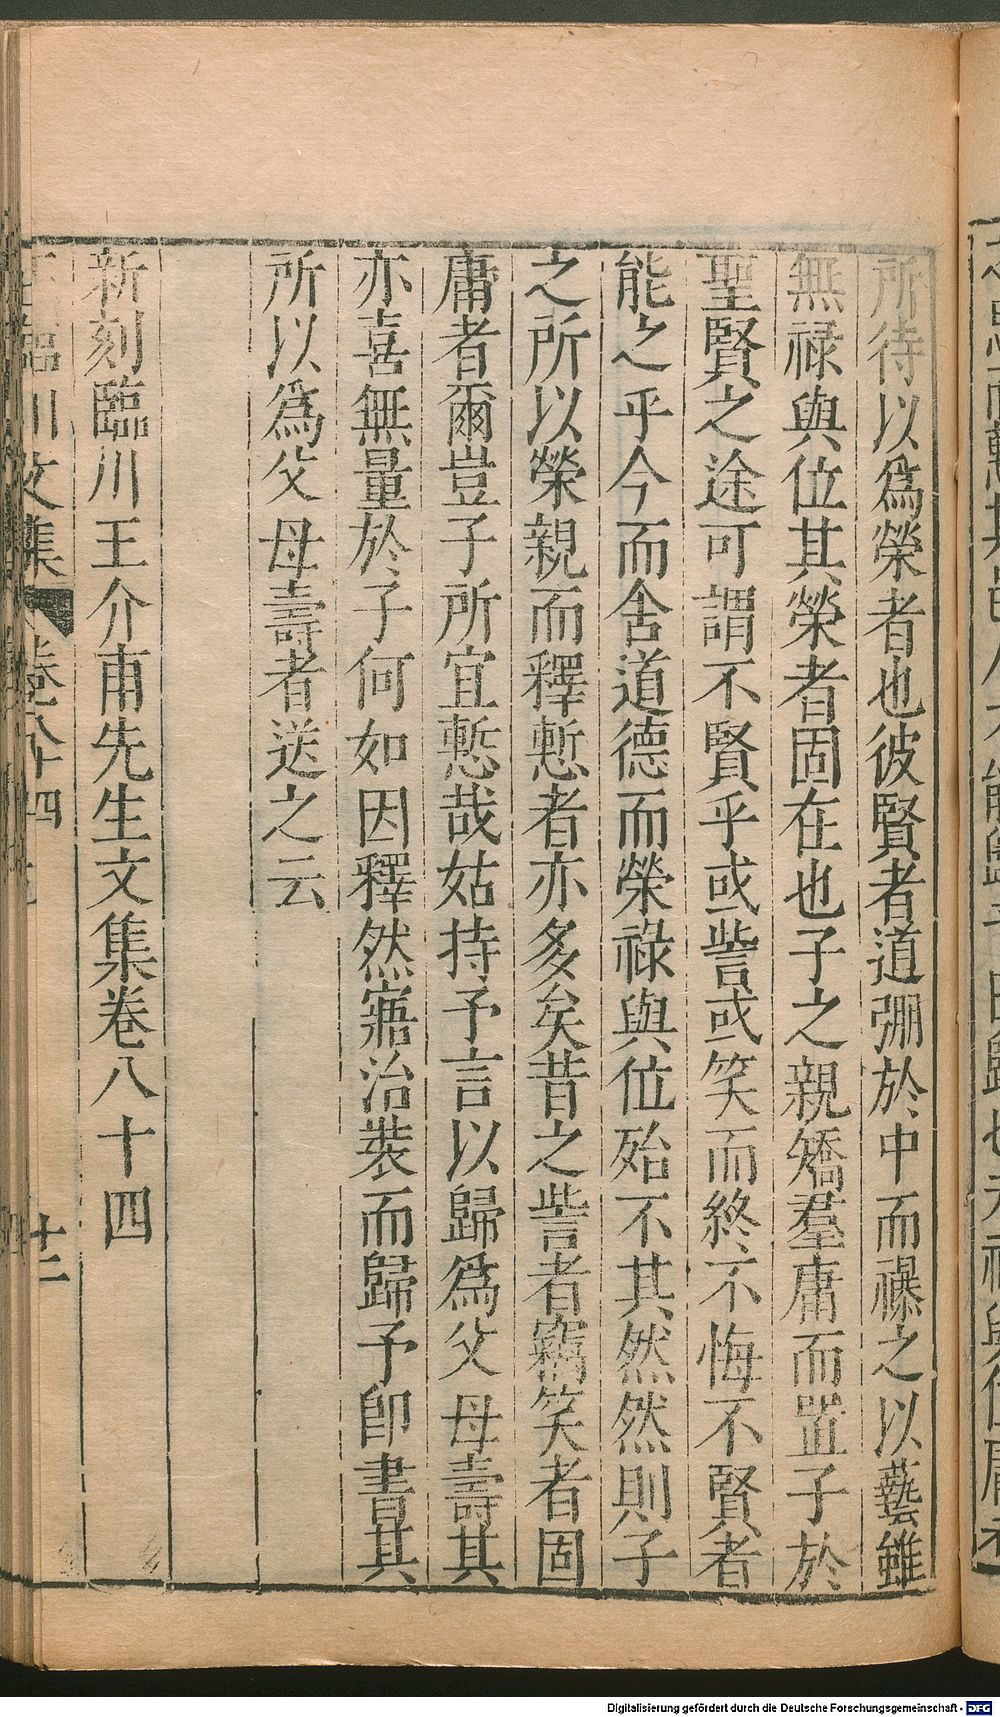 所待以爲榮者也彼賢者道弸於中而襮之以藝雖
無祿與位其榮者固在也子之親矯羣庸而置子於
聖賢之途可謂不賢乎或訾或笑而終不悔不賢者
能之乎今而舍道德而榮祿與位殆不其然然則子
之所以榮親而釋慙者亦多矣昔之訾者竊笑者固
庸者爾豈子所宜慙哉姑持予言以歸爲父母壽其
亦喜無量於子何如因釋然寤治裝而歸予卽書其
所以爲父母壽者送之云
新刻臨川王介甫先生文集卷八十四
王臨川文集
卷八十四
十二
Digitalisierung gefördert durch die Deutsche Forschungsgemeinschaft - DFG